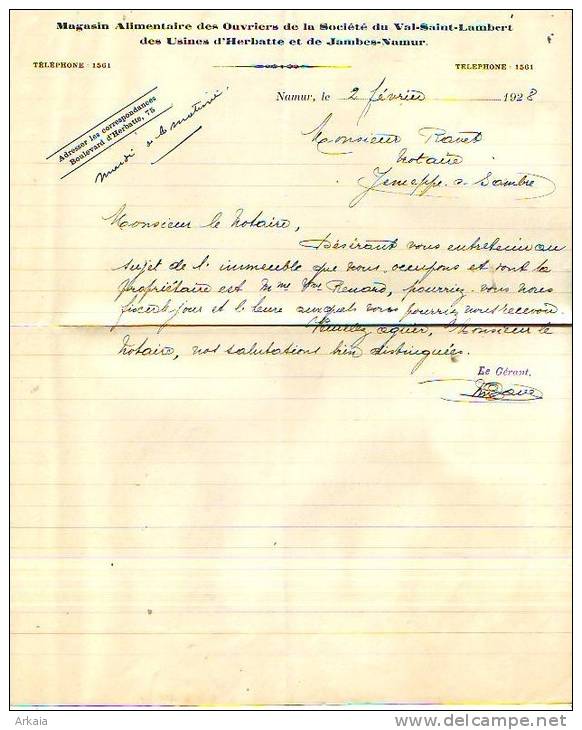 Magasin Alimentaire des Ouvriers de la Société du Val-Saint-Lambert
des Usines d'Herbatte et de Jambes-Namur.
TÉLÉPHONE : 1561
TÉLÉPHONE : 1561
Adresser les correspondances
Boulevard d'Herbatte, 75
mardi
Namur, le 2 février 1928
Monsieur
Notaire
Jemeppe s- Sambre
Monsieur le Notaire,
Désirant vous entretenir au
sujet de l'immeuble que nous occupons et dont la
propriétaire est Mme Vve Renard, pourriez-vous nous
fixer le jour et le heure auxquels vous pourriez nous recevoir.
Veuillez agréer, Monsieur le
Notaire, nos salutations bien distinguées.
Le Gérant.
Arkaia
www.delcampe.net